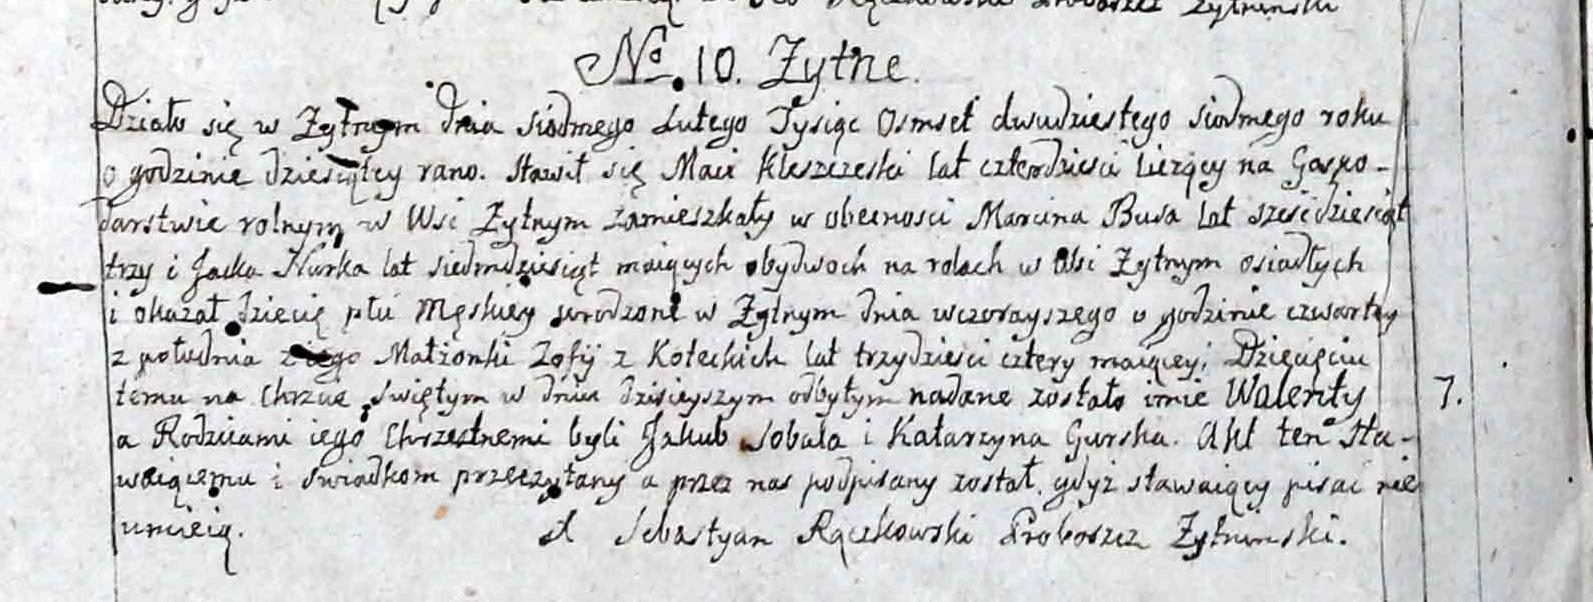 Rączkowski Proboszcz Żytninski
No. 10. Żytne.
Działo się w Żytnym dnia siódmego Lutego Tysiąc Osmset dwudziestego siodmego roku
o godzinie dziesiątey rano. Stawił się Maci Kleszczeski lat czterdzieści liczący na Gospo-
darstwie rolnym w Wsi Żytnym zamieszkały w obecnosci Marcina Busa lat sześćdziesiąt
trzy i Jacka Nurka lat siedmdziesiąt maiących obydwoch na rolach w Wsi Żytnym osiadłych
i okazał dziecię płci Męskiey urodzone w Żytnym dnia wczorayszego o godzinie czwartey
z południa z iego Małżonki Zofij z Koteckich lat trzydzieści cztery maiącey; Dziecięciu
temu na Chrzcie Świętym w dniu dzisieyszym odbytym nadane zostało imie Walenty
a Rodzicami iego Chrzestnemi byli Jakub Sobala i Katarzyna Gurska. Akt ten Sta-
waiącemu i Swiadkom przeczytany a przez nas podpisany został, gdyż stawaiący pisać nie
umieią. X Sebastyan Rączkowski Proboszcz Żytninski.
7.